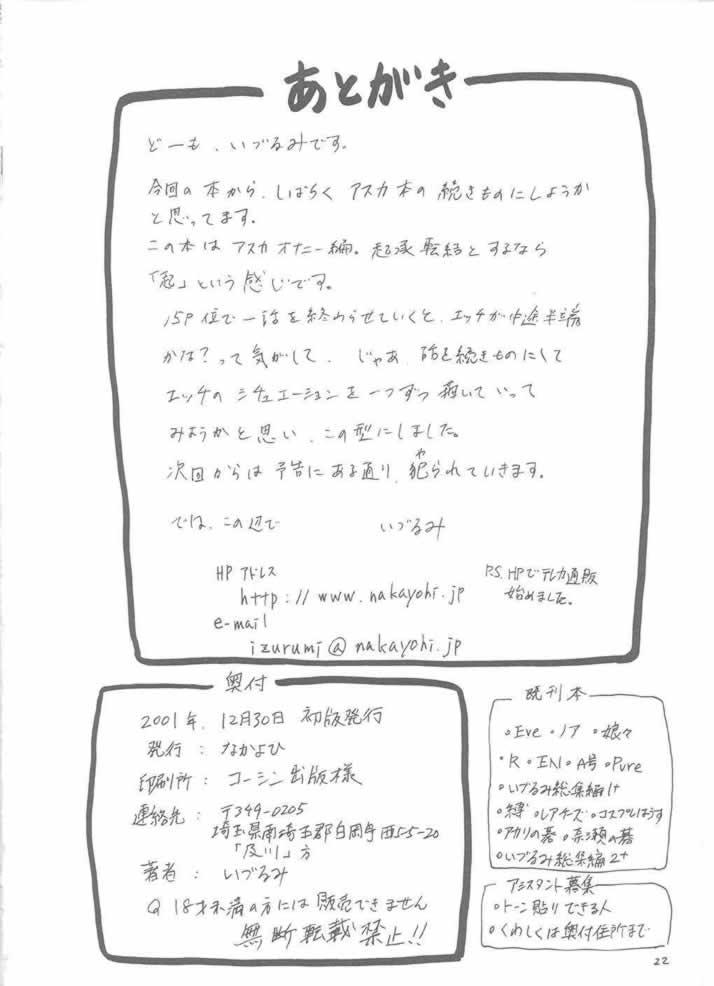 あとがき
どーも、いづるみです。
今回の本から、しばらくアスカ本の続きものにしようか
と思ってます。
この本はアスカオナニー編。起承転結とするなら
「起」という感じです。
15P位で一話を終わらせていくと、エッチが中途半端
かな?って気がして、じゃあ、話を続きものにして
エッチのシチュエーションを一つずつ描いていって
みようかと思い、この型にしました。
次回からは予告にある通り、犯られていきます。
や
では、この辺で いづるみ
HPアドレス
http://www.nakayohi.jp
e-mail
izurumi@nakayohi.jp
P.S. HPでテレカ通販
始めました。
奥付
2001年、12月30日 初版発行
発行:なかよひ
印刷所:コーシン出版様
連絡先:〒349-0205
埼玉県南埼玉郡白岡町西5-5-20
「及川」方
著者:いづるみ
18才未満の方には販売できません
無断転載禁止!!
既刊本
○Eve ○ノア ○娘々
○R ○EN ○A号 ○Pure
○いづるみ総集編1+
○縛 ○レアチーズ ○コスプレはうす
○アカリの碁 ○奈瀬の碁
○いづるみ総集編2+
アシスタント募集
○トーン貼りできる人
○くわしくは奥付住所まで
22